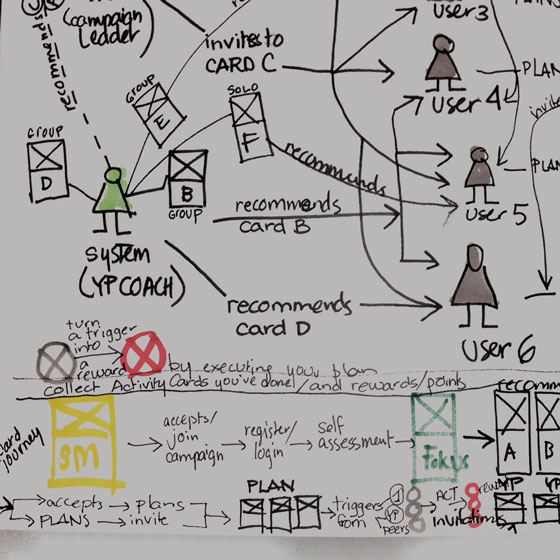 (campaign
Leader)
recommends
invites to
CARD C
User 3
PLAN
User 4
invite
GROUP
E
SOLO
F
GROUP
D
B
GROUP
recommends
PLAN
User 5
recommends
card B
system
(YPCOACH)
recommends
card D
User 6
turn
a trigger
into
a
reward
by executing your plan
collect Activity Cards you've done/and rewards/points
recomm
journey
SM
accepts/
join
campaign
register/
login
self
assessment
Fokus
A
B
PLAN
YP
YP
accepts
plans
PLANS
invite
triggers
from
1
YP
peers
ACT